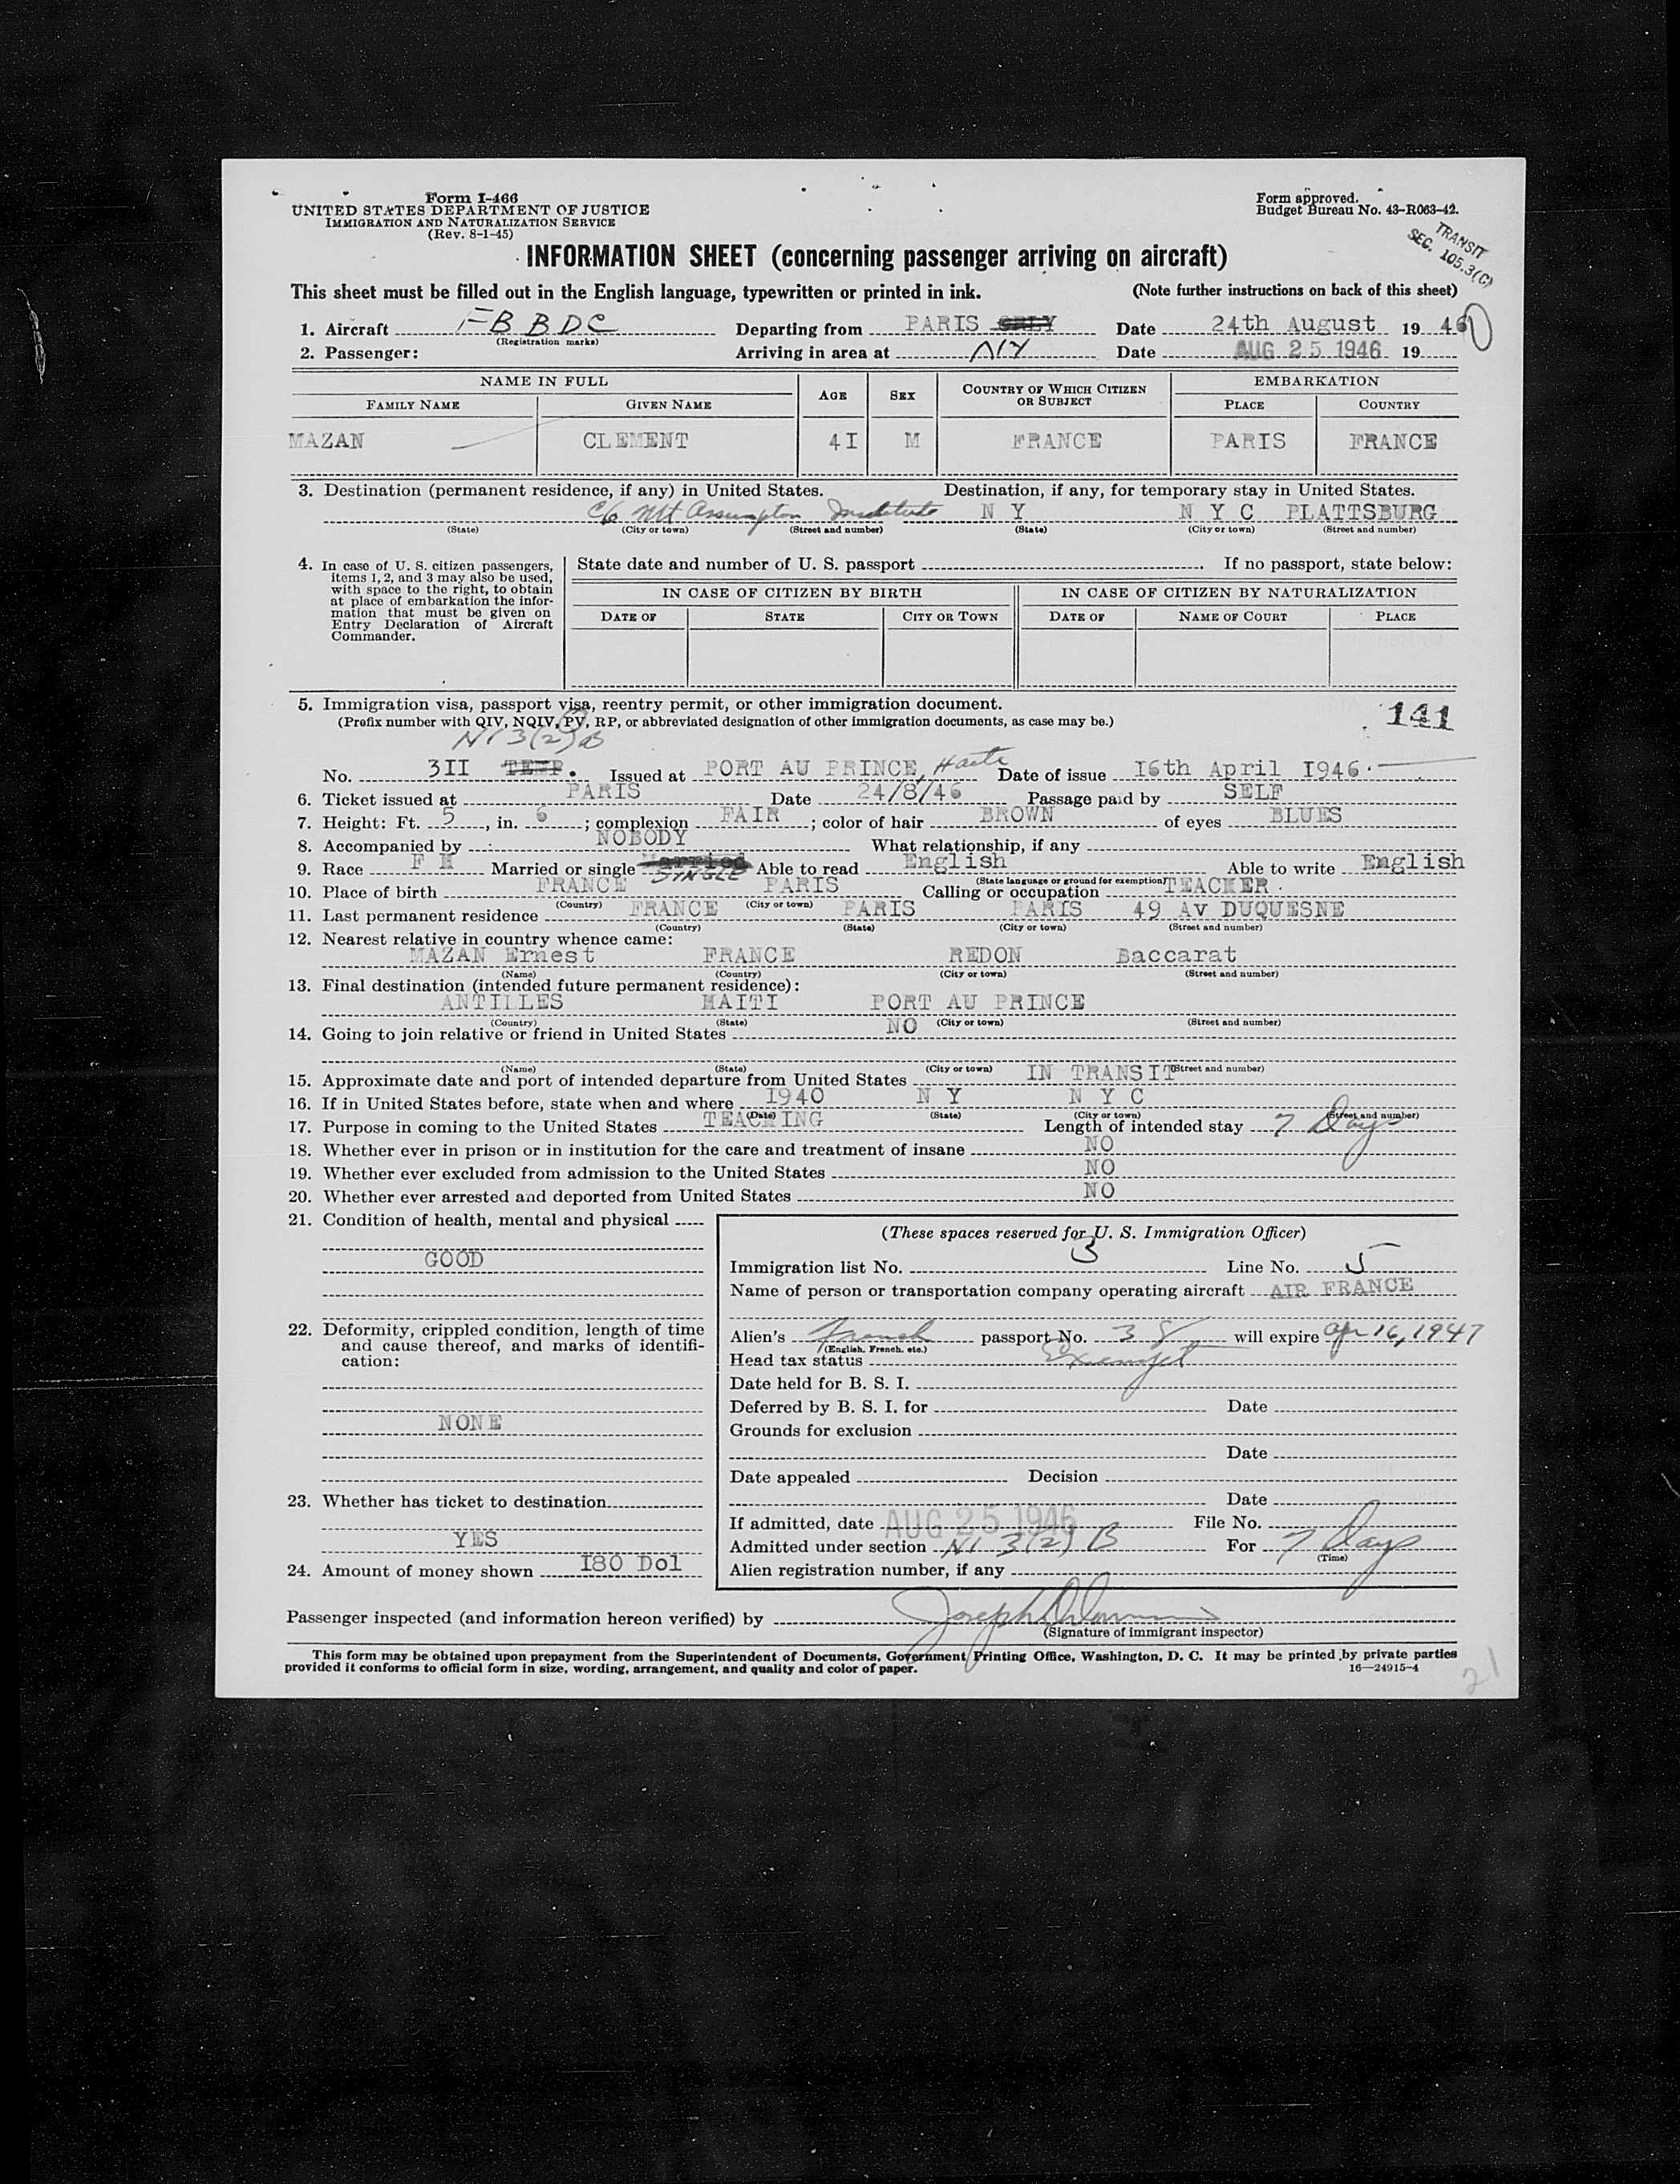 Form I-466
UNITED STATES DEPARTMENT OF JUSTICE
IMMIGRATION AND NATURALIZATION SERVICE
(Rev. 8-1-45)
Form approved.
Budget Bureau No. 43-R063-42.
TRANSIT
SEC. 105.3(C)
INFORMATION SHEET (concerning passenger arriving on aircraft)
This sheet must be filled out in the English language, typewritten or printed in ink. (Note further instructions on back of this sheet)
1. Aircraft FBBDC Departing from PARIS ORLY Date 24th August 19 46
(Registration marks)
2. Passenger: Arriving in area at NY Date AUG 25 1946 19
NAME IN FULL AGE SEX COUNTRY OF WHICH CITIZEN OR SUBJECT EMBARKATION
FAMILY NAME GIVEN NAME PLACE COUNTRY
MAZAN CLEMENT 4I M FRANCE PARIS FRANCE
3. Destination (permanent residence, if any) in United States. Destination, if any, for temporary stay in United States.
c/o Mt Assumption Institute N Y N Y C PLATTSBURG
(State) (City or town) (Street and number) (State) (City or town) (Street and number)
4. In case of U. S. citizen passengers, items 1, 2, and 3 may also be used, with space to the right, to obtain at place of embarkation the information that must be given on Entry Declaration of Aircraft Commander.
State date and number of U. S. passport . If no passport, state below:
IN CASE OF CITIZEN BY BIRTH IN CASE OF CITIZEN BY NATURALIZATION
DATE OF STATE CITY OR TOWN DATE OF NAME OF COURT PLACE
5. Immigration visa, passport visa, reentry permit, or other immigration document.
(Prefix number with QIV, NQIV, PV, RP, or abbreviated designation of other immigration documents, as case may be.)
141
NI 3(2) B
No. 3II TEMP. Issued at PORT AU PRINCE, Haiti Date of issue I6th April I946.
6. Ticket issued at PARIS Date 24/8/46 Passage paid by SELF
7. Height: Ft. 5, in. 6; complexion FAIR; color of hair BROWN of eyes BLUES
8. Accompanied by NOBODY What relationship, if any
9. Race F H Married or single Married SINGLE Able to read English Able to write English
(State language or ground for exemption)
10. Place of birth FRANCE PARIS Calling or occupation TEACHER.
(Country) (City or town)
11. Last permanent residence FRANCE PARIS PARIS 49 Av DUQUESNE
(Country) (State) (City or town) (Street and number)
12. Nearest relative in country whence came:
MAZAN Ernest FRANCE REDON Baccarat
(Name) (Country) (City or town) (Street and number)
13. Final destination (intended future permanent residence):
ANTILLES HAITI PORT AU PRINCE
(Country) (State) (City or town) (Street and number)
14. Going to join relative or friend in United States NO
(Name) (State) (City or town) (Street and number)
15. Approximate date and port of intended departure from United States IN TRANSIT
16. If in United States before, state when and where I940 N Y N Y C
(Date) (State) (City or town) (Street and number)
17. Purpose in coming to the United States TEACHING Length of intended stay 7 Days
18. Whether ever in prison or in institution for the care and treatment of insane NO
19. Whether ever excluded from admission to the United States NO
20. Whether ever arrested and deported from United States NO
21. Condition of health, mental and physical
GOOD
22. Deformity, crippled condition, length of time and cause thereof, and marks of identification:
NONE
23. Whether has ticket to destination
YES
24. Amount of money shown I80 Dol
(These spaces reserved for U. S. Immigration Officer)
Immigration list No. 3 Line No. 5
Name of person or transportation company operating aircraft AIR FRANCE
Alien's French passport No. 38 will expire Apr 16, 1947
(English, French, etc.)
Head tax status Exempt
Date held for B. S. I.
Deferred by B. S. I. for Date
Grounds for exclusion
Date
Date appealed Decision
Date
If admitted, date AUG 25 1946 File No.
Admitted under section NI 3(2) B For 7 Days
(Time)
Alien registration number, if any
Passenger inspected (and information hereon verified) by Joseph
(Signature of immigrant inspector)
This form may be obtained upon prepayment from the Superintendent of Documents, Government Printing Office, Washington, D. C. It may be printed by private parties
provided it conforms to official form in size, wording, arrangement, and quality and color of paper. 16—24915-4
21